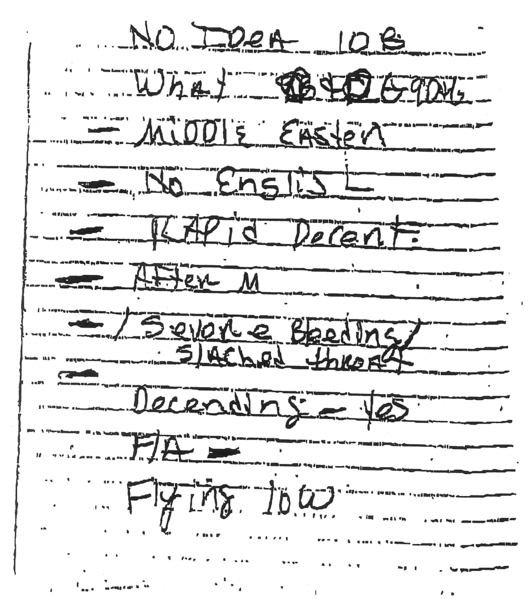 NO IDEA 10B
What
- MIDDLE EASTEN
- No Englis
- RAPid Decent.
- AFTER M
- / Severe Bleeding /
SlAChed throat
-
Decending - Yes
F/A -
Flying low